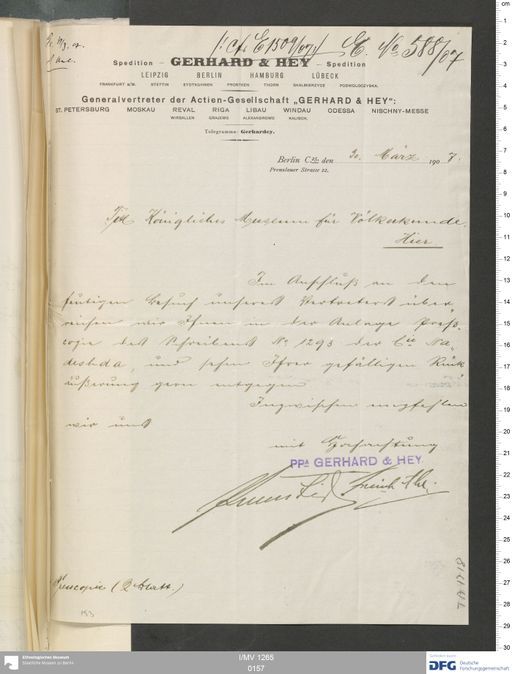 /: cf. E 1509/07 :/ E. No 588/07
Spedition – GERHARD & HEY – Spedition
LEIPZIG BERLIN HAMBURG LÜBECK
FRANKFURT a/M. STETTIN EYDTKUHNEN PROSTKEN THORN SKALMIERZYCE PODWOLOCZYSKA.
Generalvertreter der Actien-Gesellschaft „GERHARD & HEY“:
ST. PETERSBURG MOSKAU REVAL RIGA LIBAU WINDAU ODESSA NISCHNY-MESSE
WIRBALLEN GRAJEWO ALEXANDROWO KALISCH.
Telegramme: Gerhardey.
Berlin C., den 30. März 1907.
Prenzlauer Strasse 22.
Königliches Museum für Völkerkunde,
Hier
Im Anschluß an den
heutigen Besuch unseres Vertreters über-
reichen wir Ihnen in der Anlage Press-
copie des Schreibens No 1293 der Cie Na-
deshda, und sehen Ihrer gefälligen Rück-
äußerung gern entgegen
Inzwischen empfehlen
wir uns
mit Hochachtung
PPA GERHARD & HEY.
Presscopie (2 Blatt.)
153
I/MV 1265
0157
Ethnologisches Museum
Staatliche Museen zu Berlin
Gefördert durch
DFG Deutsche
Forschungsgemeinschaft
cm
1
2
3
4
5
6
7
8
9
10
11
12
13
14
15
16
17
18
19
20
21
22
23
24
25
26
27
28
29
30